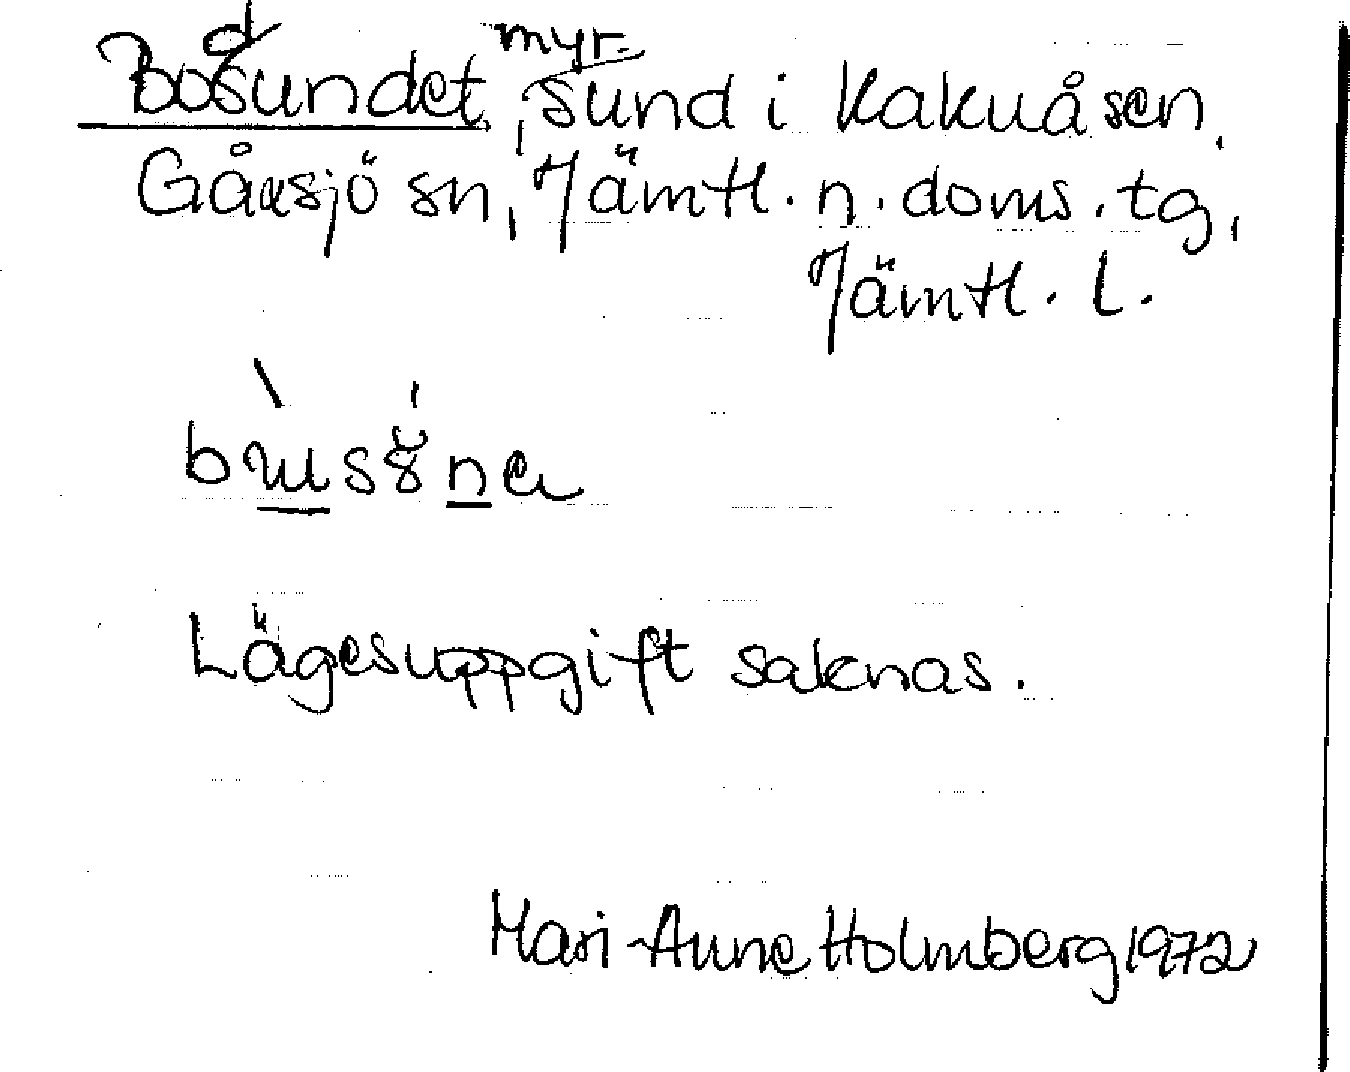 Bodsundet, myrsund i Kakuåsen,
Gåxsjö sn, Jämtl. n. doms. tg,
Jämtl. l.
Lägesuppgift saknas.
Mari-Anne Holmberg 1972